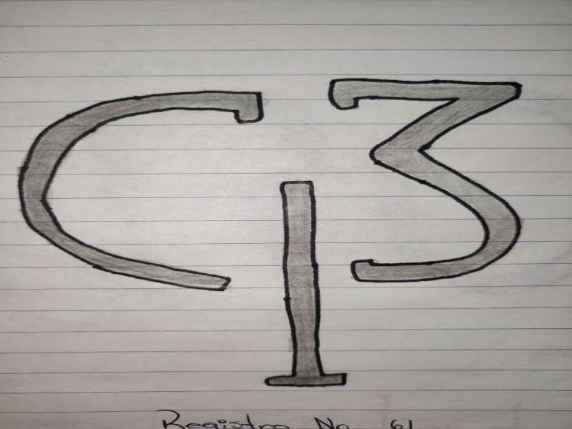 C 3
1
Registro No 61